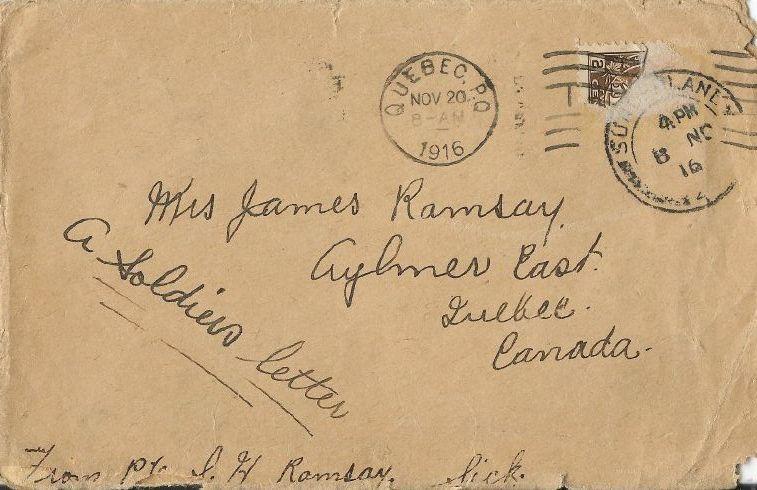 QUEBEC, P.Q
NOV 20
8-AM
1916
4 PM
8 NO
16
Mrs James Ramsay.
Aylmer East.
Quebec.
Canada.
A Soldiers letter
From Pte S. H Ramsay. Sick.